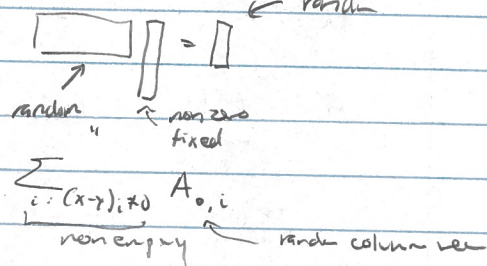 ← random
=
random "
↑ nonzero
fixed
∑ i : (x-y)_i ≠ 0 A_{0,i}
nonempty ← random column vec